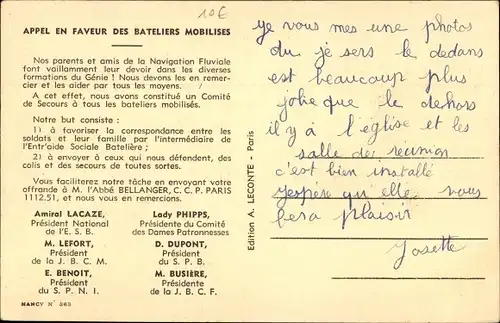 10€
APPEL EN FAVEUR DES BATELIERS MOBILISES
Nos parents et amis de la Navigation Fluviale
font vaillamment leur devoir dans les diverses
formations du Génie ! Nous devons les en remer-
cier et les aider par tous les moyens.
A cet effet, nous avons constitué un Comité
de Secours à tous les bateliers mobilisés.
Notre but consiste :
1) à favoriser la correspondance entre les
soldats et leur famille par l'intermédiaire de
l'Entr'aide Sociale Batelière ;
2) à envoyer à ceux qui nous défendent, des
colis et des secours de toutes sortes.
Vous faciliterez notre tâche en envoyant votre
offrande à M. l'Abbé BELLANGER, C. C. P. PARIS
1112.51, et nous vous en remercions.
Amiral LACAZE,
Président National
de l'E. S. B.
Lady PHIPPS,
Présidente du Comité
des Dames Patronnesses
M. LEFORT,
Président
de la J. B. C. M.
D. DUPONT,
Président
du S. P. B.
E. BENOIT,
Président
du S. P. N. I.
M. BUSIÈRE,
Présidente
de la J. B. C. F.
NANCY N° 363
Edition A. LECONTE - Paris
je vous mes une photos
du je sers le dedans
est beaucoup plus
jolie que le dehors
il y à l'église et les
salle de reunion
c'est bien installé
j'espère qu'elle vous
fera plaisir
Josette